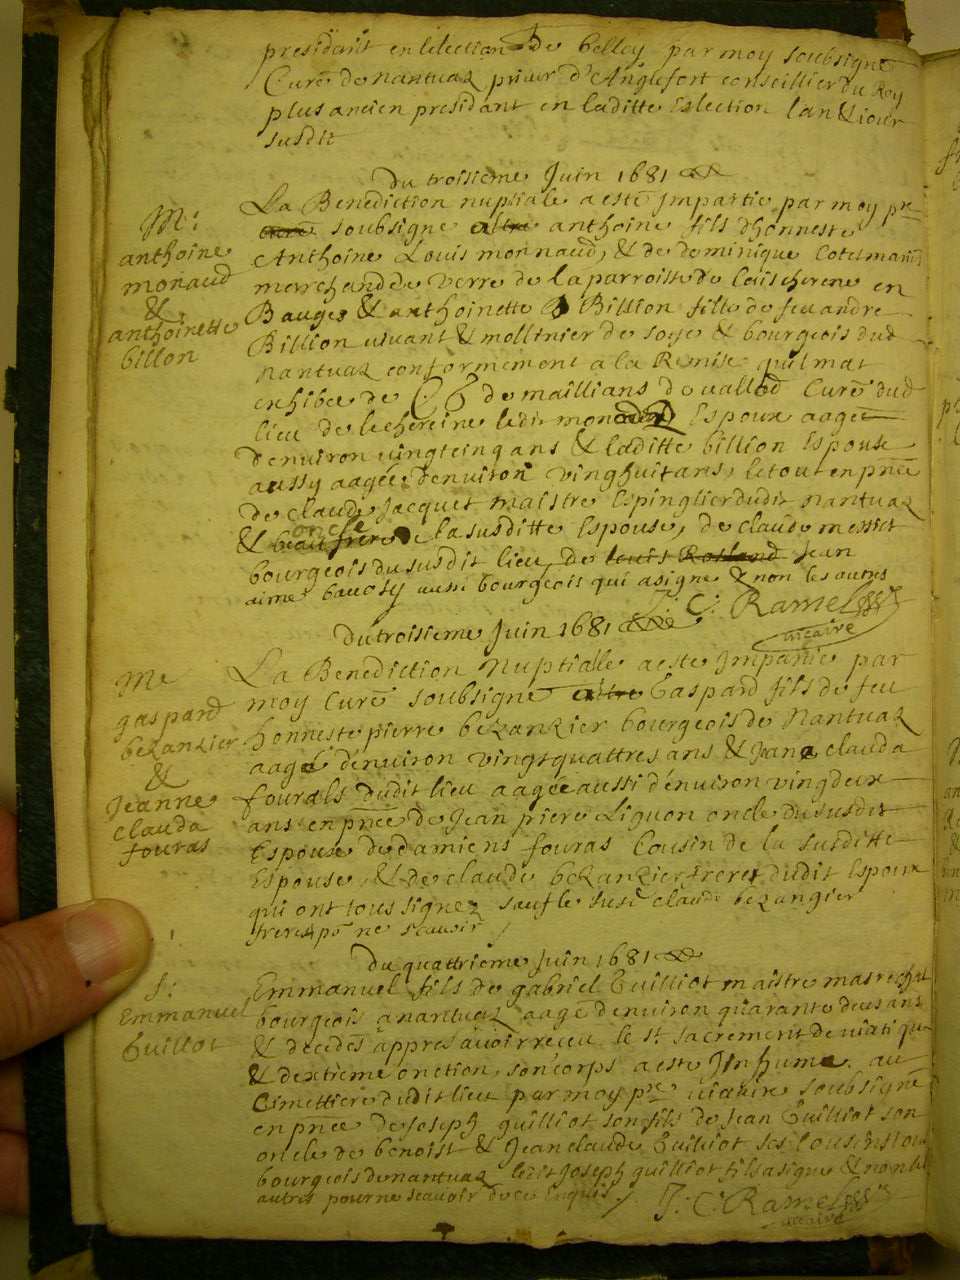 presidant en lélection de belley par moy soubsigné
Curé de nantuaz prieur d'Anglefort conseillier du Roy
plus ancien presidant en laditte Eslection l'an & iour
susdit
Du troisieme Juin 1681
M:
anthoine
monaud
&
anthoinette
billon
La Benediction nuptiale a esté Impartie par moy pre
curé soubsigné a anthoine fils d'honneste
Anthoine Louis monnaud, & de dominique
marchand de verre de la parroisse de en
Bauges & anthoinette Billion fille de feu andre
Billion vivant & mollinier de soye & bourgeois dud
nantuaz conformement a la Remise quil mat
exhibée de de maillians Curé dud
lieu de lechereine ledit Espoux aagé
denviron vingtcinq ans & laditte billion Espouse
aussy aagée denviron vinghuit ans, le tout en pnce
de claude Jacquet maistre Espinglier dudit nantuaz
& beau frere oncle de la susditte Espouse, de claude
bourgeois du susdit lieu, de louis Rolland Jean
aimé aussi bourgeois qui a signe & non les autres
J. C. Ramel
vicaire
Du troisieme Juin 1681
Me
gaspard
bezanzier
&
Jeanne
clauda
fouras
La Benediction Nuptialle a este Impartie par
moy Curé soubsigné Gaspard fils de feu
honneste pierre bezanzier bourgeois de Nantuaz
aagé d'environ vingtquattres ans & Jeane clauda
dudit lieu aagée aussi d'environ vingdeux
ans en pnce de Jean piere Liguon oncle du susdit
Espoux de damiens fouras Cousin de la susditte
Espouse, & de claude bezanzier frere dudit Espoux
qui ont tous signez sauf le susd claude bezangier
frere pr ne scavoir
Du quattrieme Juin 1681
S:
Emmanuel
Guillot
Emmanuel fils de gabriel Guilliot maistre mareschal
bourgeois a nantuaz aagé denviron quarante deux ans
& decedes appres avoir receu le st sacrement de viatique
& dextreme onction, son corps a este Inhumé au
Cimettiere dudit lieu par moy pre vicaire soubsigné
en pnce de Joseph guilliot son fils de Jean Guilliot son
oncle de benoist & Jean claude Guilliot ses Cousins tous
bourgeois de nantuaz ledit Joseph guilliot fils a signe & non les
autres pour ne scavoir de ce Enquis
J. C. Ramel
vicaire